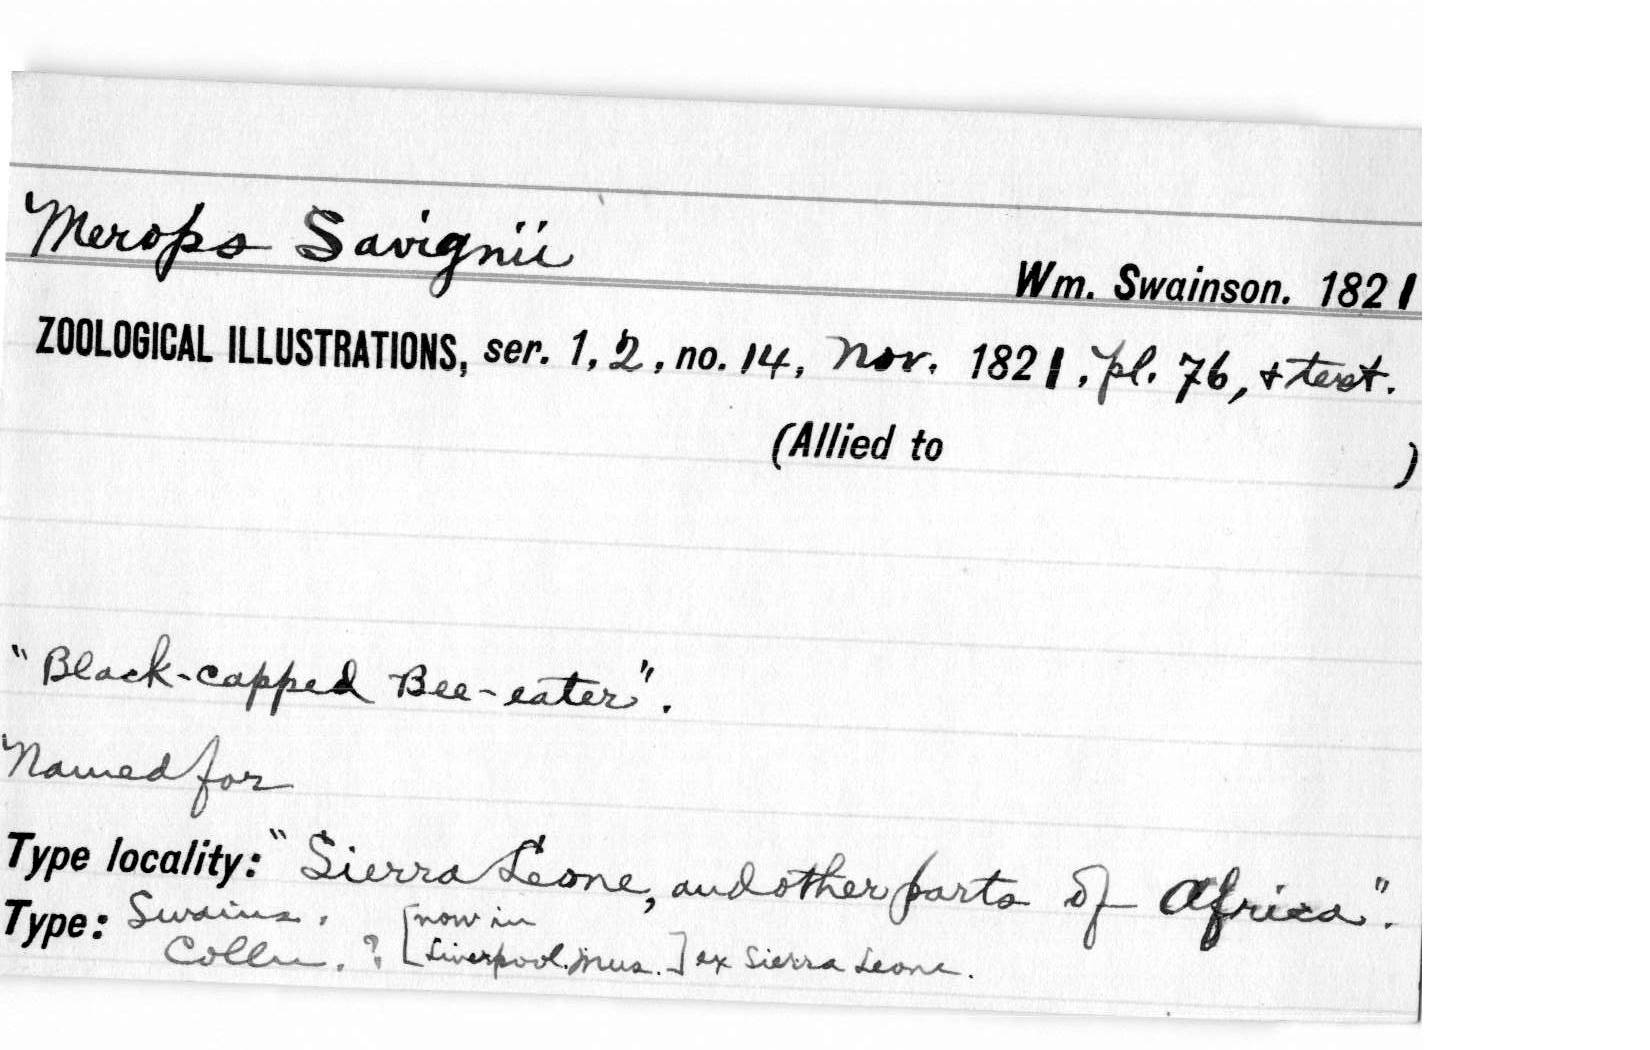 Merops Savignii
Wm. Swainson. 1821
ZOOLOGICAL ILLUSTRATIONS, ser. 1, 2, no. 14, Nov. 1821, pl. 76, + text.
(Allied to )
"Black-capped Bee-eater".
Named for
Type locality: "Sierra Leone, and other parts of Africa".
Type: Swains. [now in
Colln. ? Liverpool. Mus.] ex Sierra Leone.